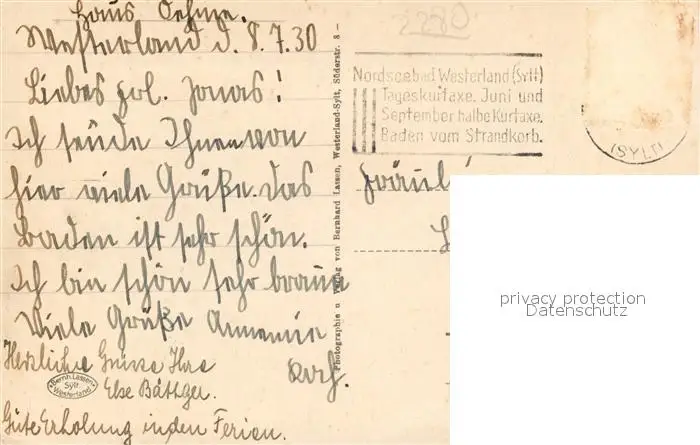 Haus Oehme.
Westerland d. 8.7.30
Liebes Frl. Jonas!
Ich sende Ihnen von
hier viele Grüße. Das
Baden ist sehr schön.
Ich bin schön sehr braun
Viele Grüße Annemie
Koch.
Herzliche Grüsse Ihre
Else Bättger.
Gute Erholung in den Ferien.
Bernh. Lassen
Sylt
Westerland
Photographie u Verlag von Bernhard Lassen, Westerland-Sylt, Süderstr. 8 —
2280
Nordseebad Westerland (Sylt)
Tageskurtaxe. Juni und
September halbe Kurtaxe.
Baden vom Strandkorb.
(SYLT)
Fräul
privacy protection
Datenschutz